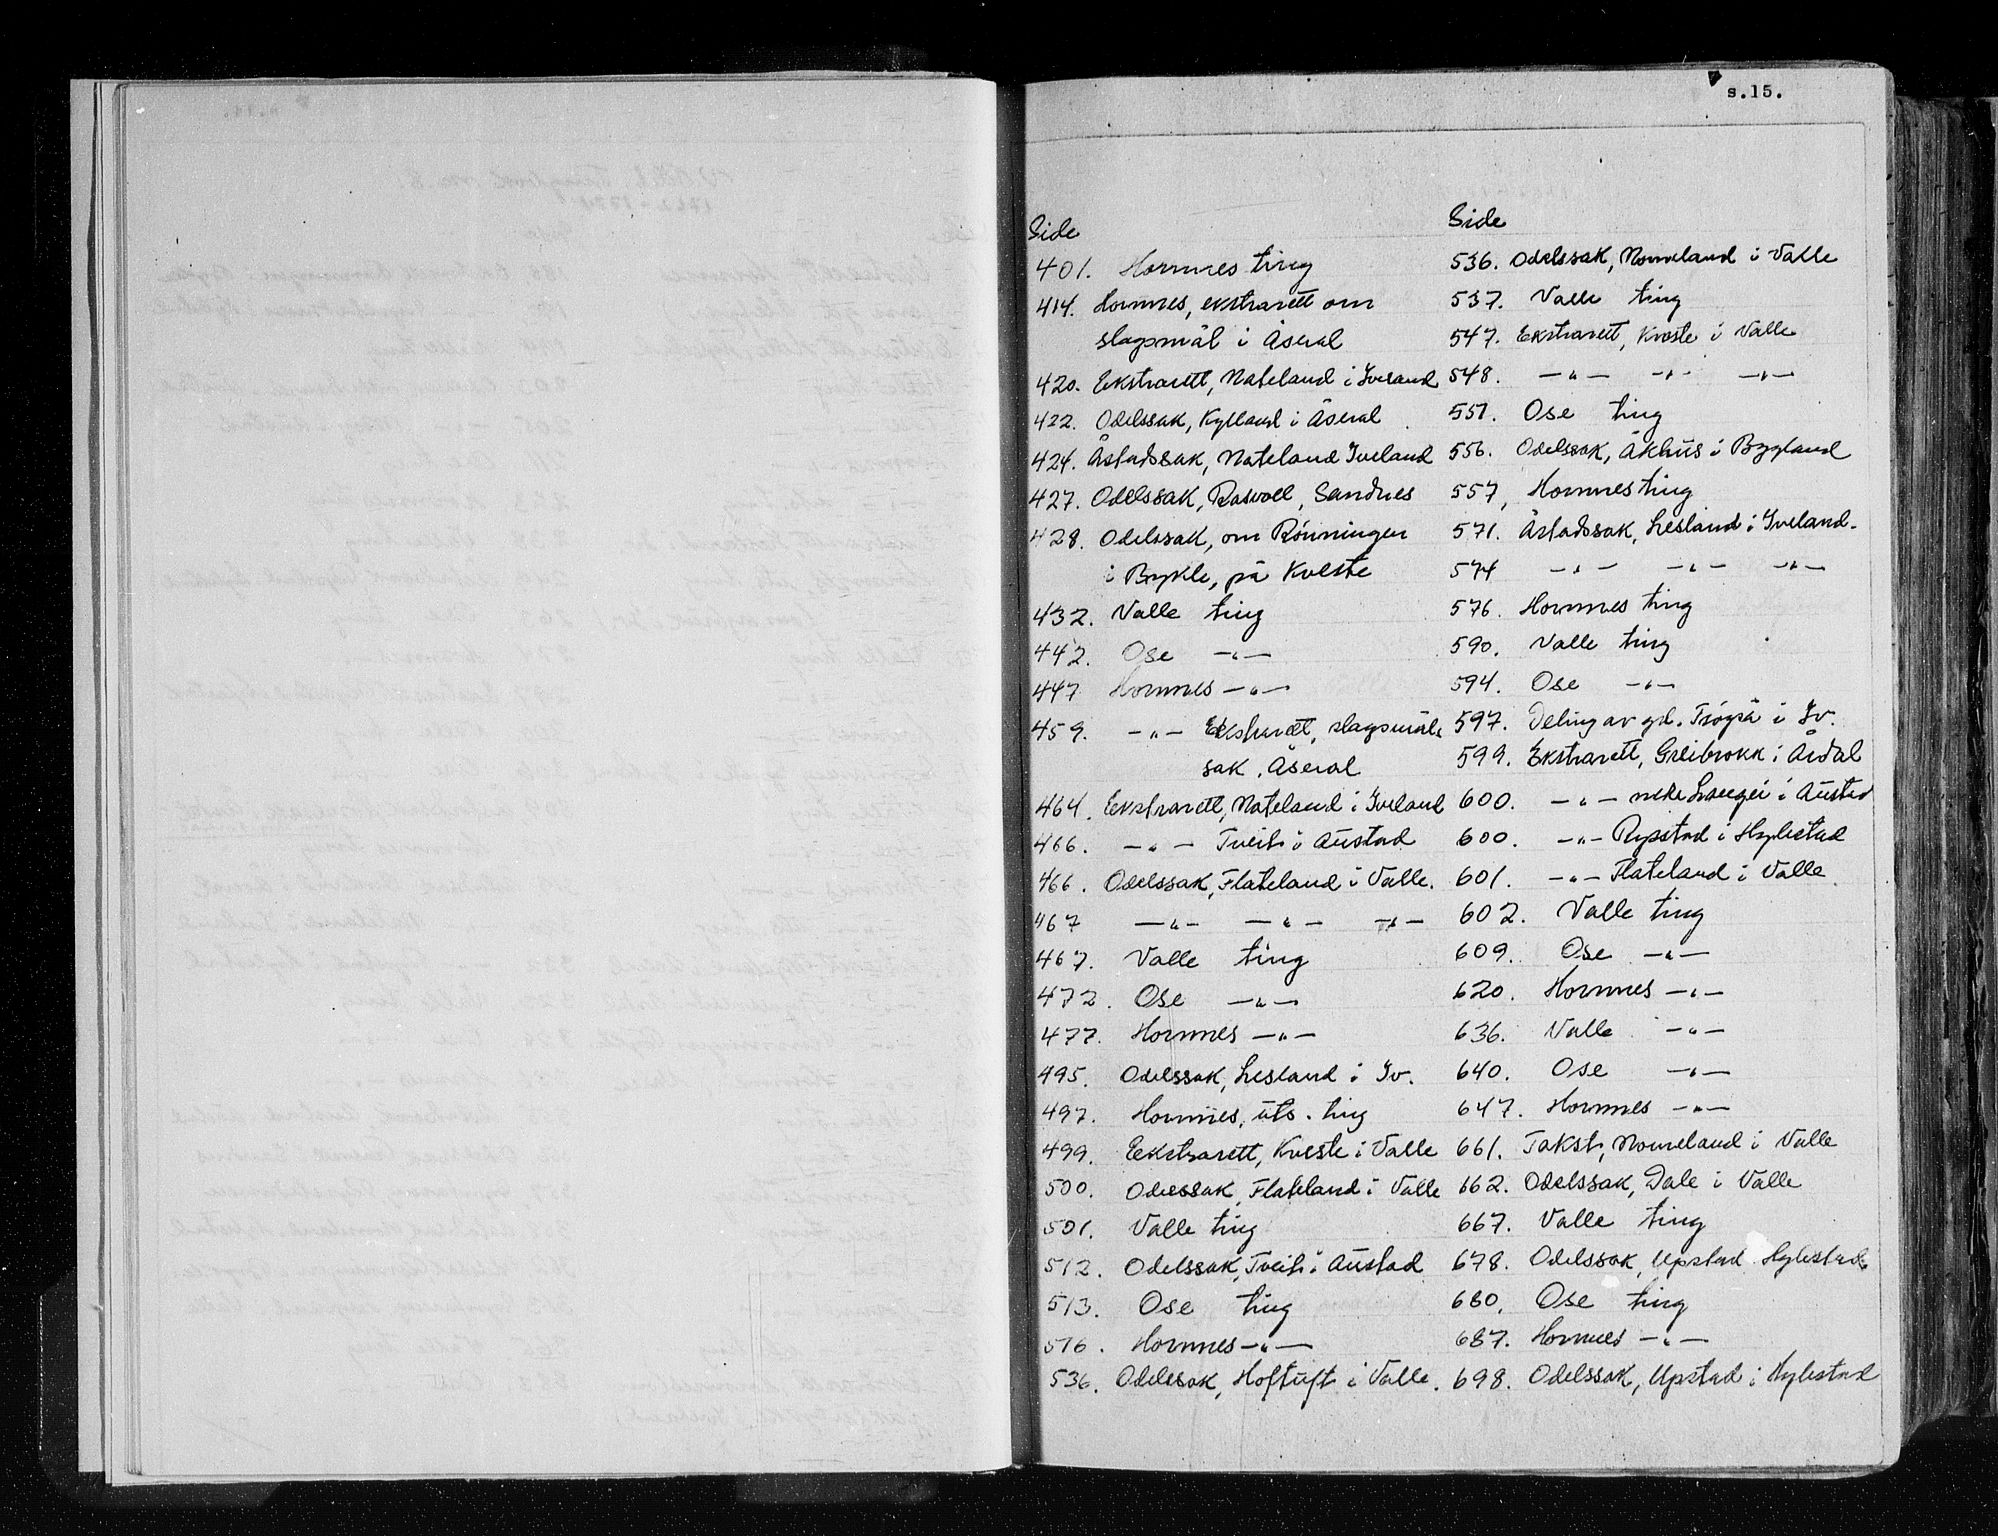 s.15.
Side
401. Hornnes ting
414. Hornnes, ekstrarett om
slagsmål i Åseral
420. Ekstrarett, Nateland i Iveland
422. Odelssak, Kylland i Åseral
424. Åstadssak, Nateland Iveland
427. Odelssak, Rasvoll, Sandnes
428. Odelssak, om Rönningen
i Bykle, på Kveste
432. Valle ting
442. Ose —"—
447 Hornnes —"—
459. —"— Ekstrarett, slagsmåls
sak, Åseral
464. Ekstrarett, Nateland i Iveland
466. —"— Tveit i Austad
466. Odelssak, Flateland i Valle.
467 —"— —"— —"—
467. Valle ting
472. Ose —"—
477. Hornnes —"—
495. Odelssak, Lesland i Iv.
497. Hornnes, uts. ting
499. Ekstrarett, Kveste i Valle
500. Odelssak, Flateland i Valle
501. Valle ting
512. Odelssak, Tveit i Austad
513. Ose ting
516. Hornnes —"—
536. Odelssak, Hoftuft i Valle.
Side
536. Odelssak, Nomeland i Valle
537. Valle ting
547. Ekstrarett, Kveste i Valle
548. —"— —"— —"—
551. Ose ting
556. Odelssak, Åkhus i Bygland
557, Hornnes ting
571. Åstadssak, Lesland i Iveland.
574 —"— —"— —"—
576. Hornnes ting
590. Valle ting
594. Ose —"—
597. Deling av gd. Frögså i Iv.
599. Ekstrarett, Greibrokk i Årdal
600. —"— nedre Langei i Austad
600. —"— Rysstad i Hylestad
601. —"— Flateland i Valle
602. Valle ting
609. Ose —"—
620. Hornnes —"—
636. Valle —"—
640. Ose —"—
647. Hornnes —"—
661. Takst, Nomeland i Valle
662. Odelssak, Dale i Valle
667. Valle ting
678. Odelssak, Upstad Hylestad.
680. Ose ting
687. Hornnes —"—
698. Odelssak, Upstad i Hylestad